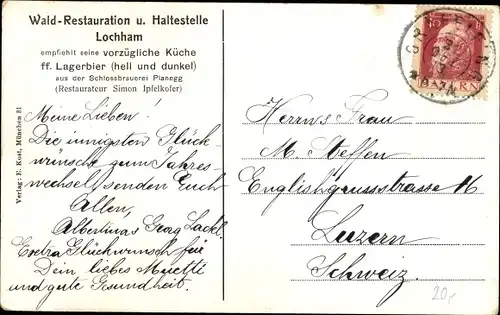 Wald-Restauration u. Haltestelle
Lochham
empfiehlt seine vorzügliche Küche
ff. Lagerbier (hell und dunkel)
aus der Schlossbrauerei Planegg
(Restaurateur Simon Ipfelkofer)
Verlag: E. Kost, München 21
Meine Lieben!
Die innigsten Glück-
wünsche zum Jahres-
wechsel senden Euch
Allen,
Albertina & Georg
Extra Glückwunsch für
Dein liebes
und gute Gesundheit.
15
Herrn & Frau
M. Steffen
Englischgrussstrasse 16
Luzern
Schweiz.
20,-